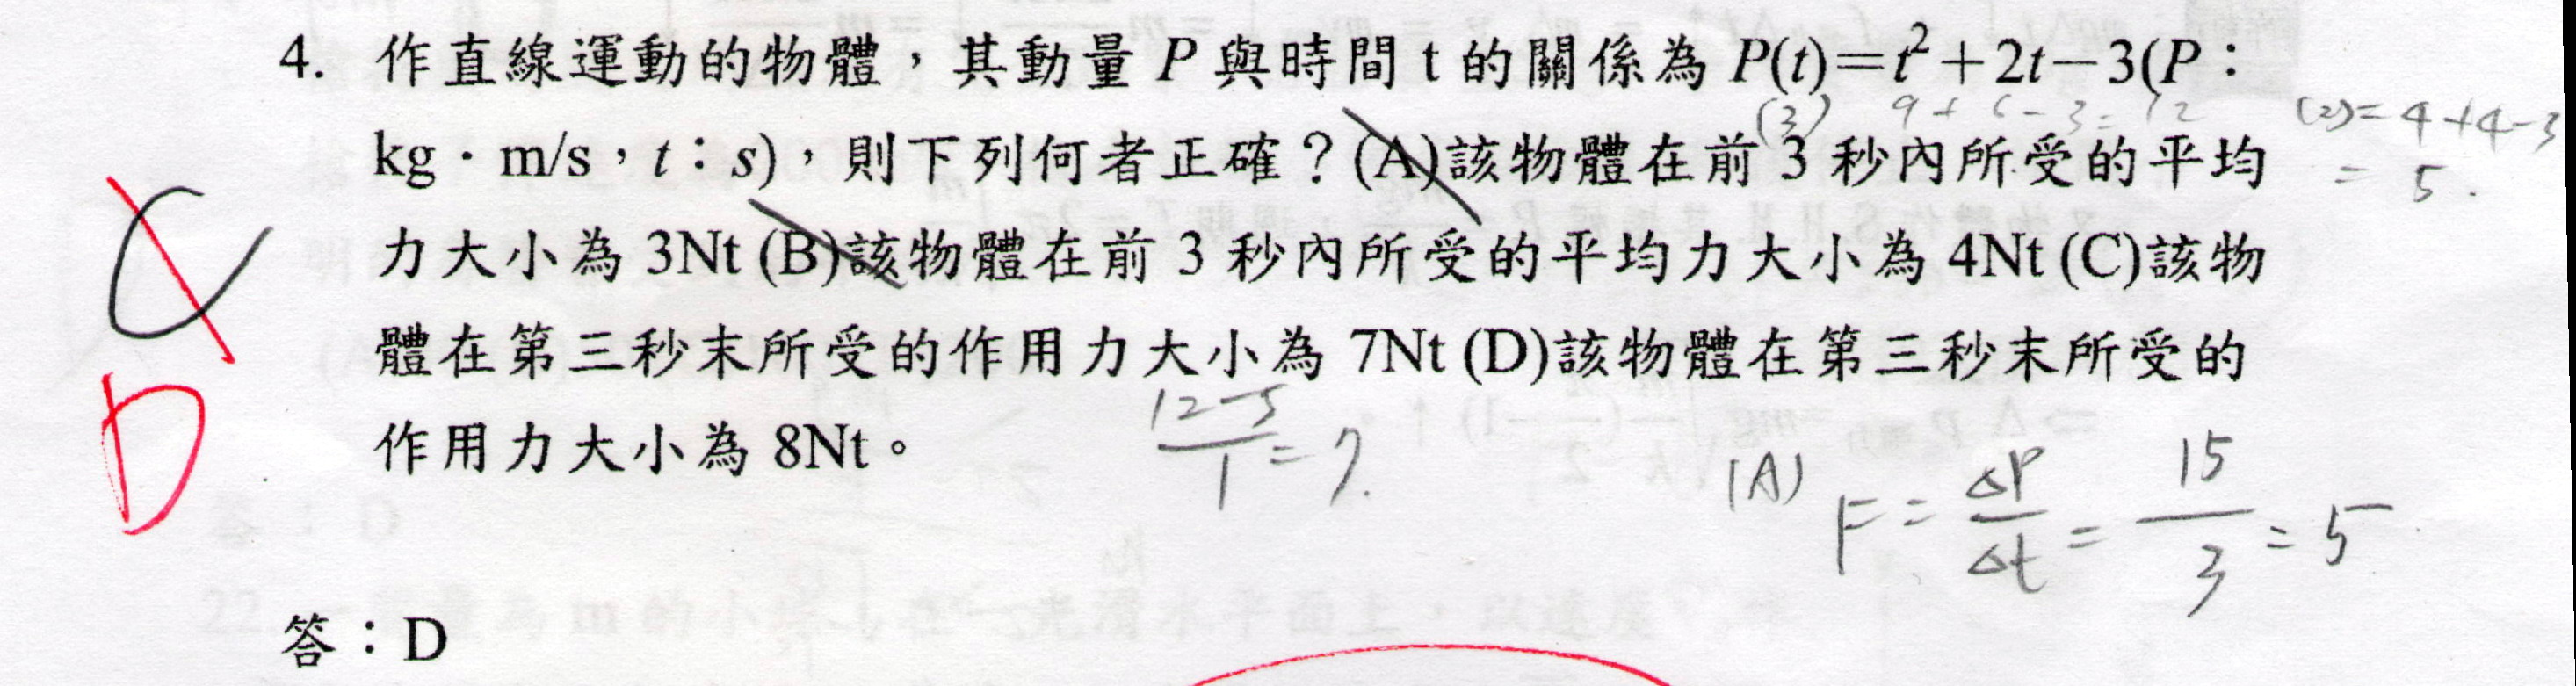 4. 作直線運動的物體，其動量 P 與時間 t 的關係為 P(t)=t²+2t-3(P：
(3) 9+6-3=12
(2)=4+4-3
=5.
kg·m/s，t：s)，則下列何者正確？(A)該物體在前 3 秒內所受的平均
力大小為 3Nt (B)該物體在前 3 秒內所受的平均力大小為 4Nt (C)該物
體在第三秒末所受的作用力大小為 7Nt (D)該物體在第三秒末所受的
作用力大小為 8Nt。
C
D
12-5/1=7.
(A) F=ΔP/Δt=15/3=5
答：D